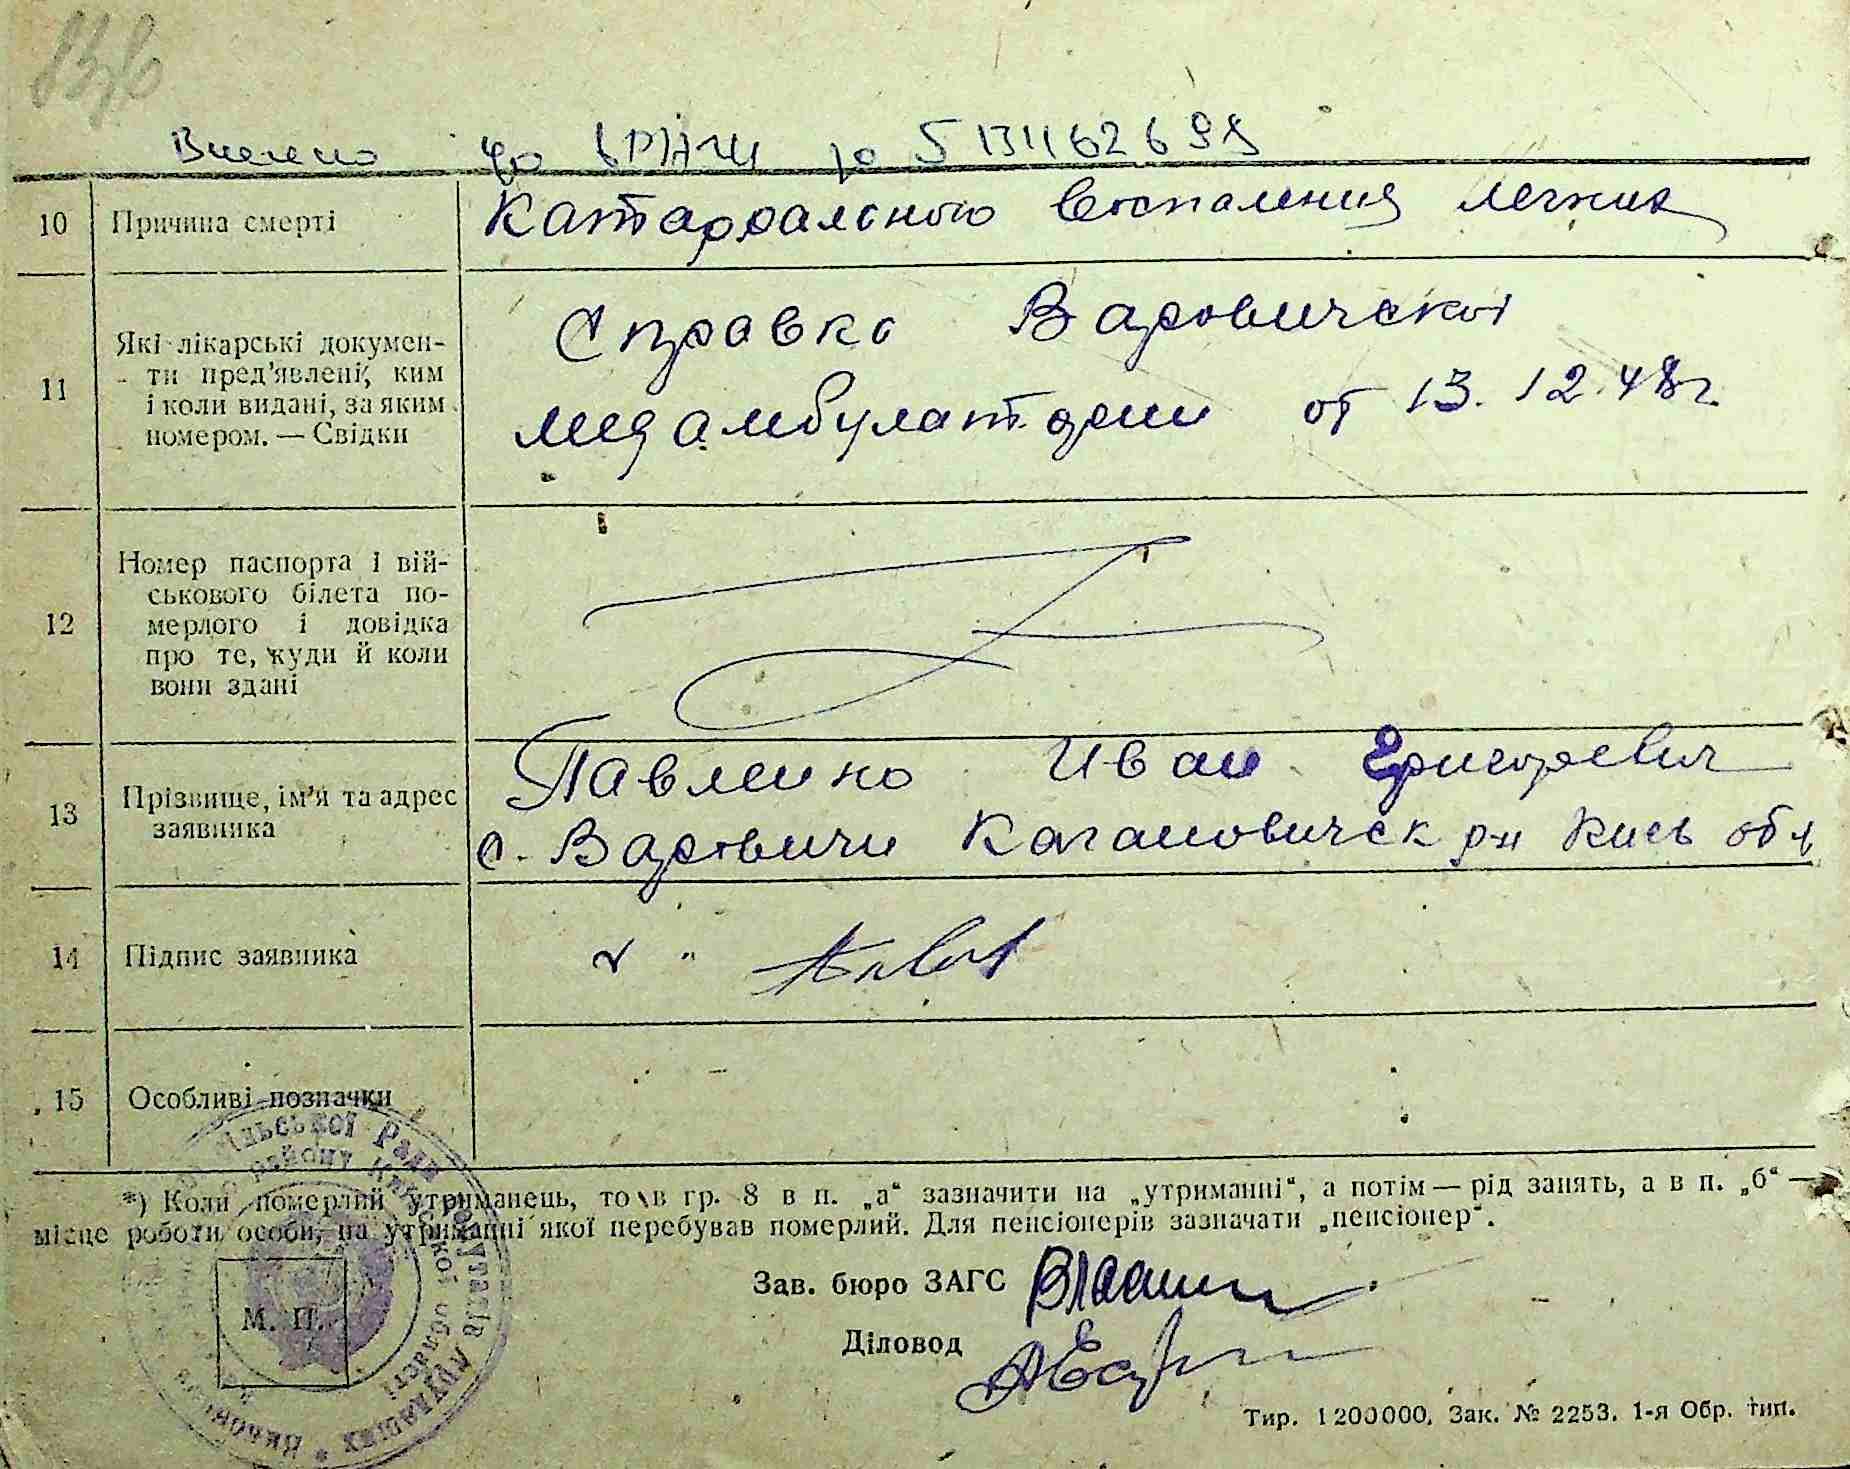 Внесено до ДРАЦС за 5131162699
10 Причина смерті Катаррального воспаления легких
11 Які лікарські докумен-
ти пред'явлені, ким
і коли видані, за яким
номером. — Свідки
Справка Варовичской
медамбулатории от 13.12.48г.
12 Номер паспорта і вій-
ськового білета по-
мерлого і довідка
про те, куди й коли
вони здані
13 Прізвище, ім'я та адрес
заявника
Павленко Иван Григорьевич
с. Варовичи Кагановичск р-н Киев обл
14 Підпис заявника
15 Особливі позначки
*) Коли померлий утриманець, то в гр. 8 в п. „а“ зазначити на „утриманні“, а потім — рід занять, а в п. „б“ —
місце роботи особи, на утриманні якої перебував померлий. Для пенсіонерів зазначати „пенсіонер“.
Зав. бюро ЗАГС
Діловод
М. П.
сільської Ради депутатів трудящих
району Київської області
Тир. 1200000. Зак. № 2253. 1-я Обр. тип.